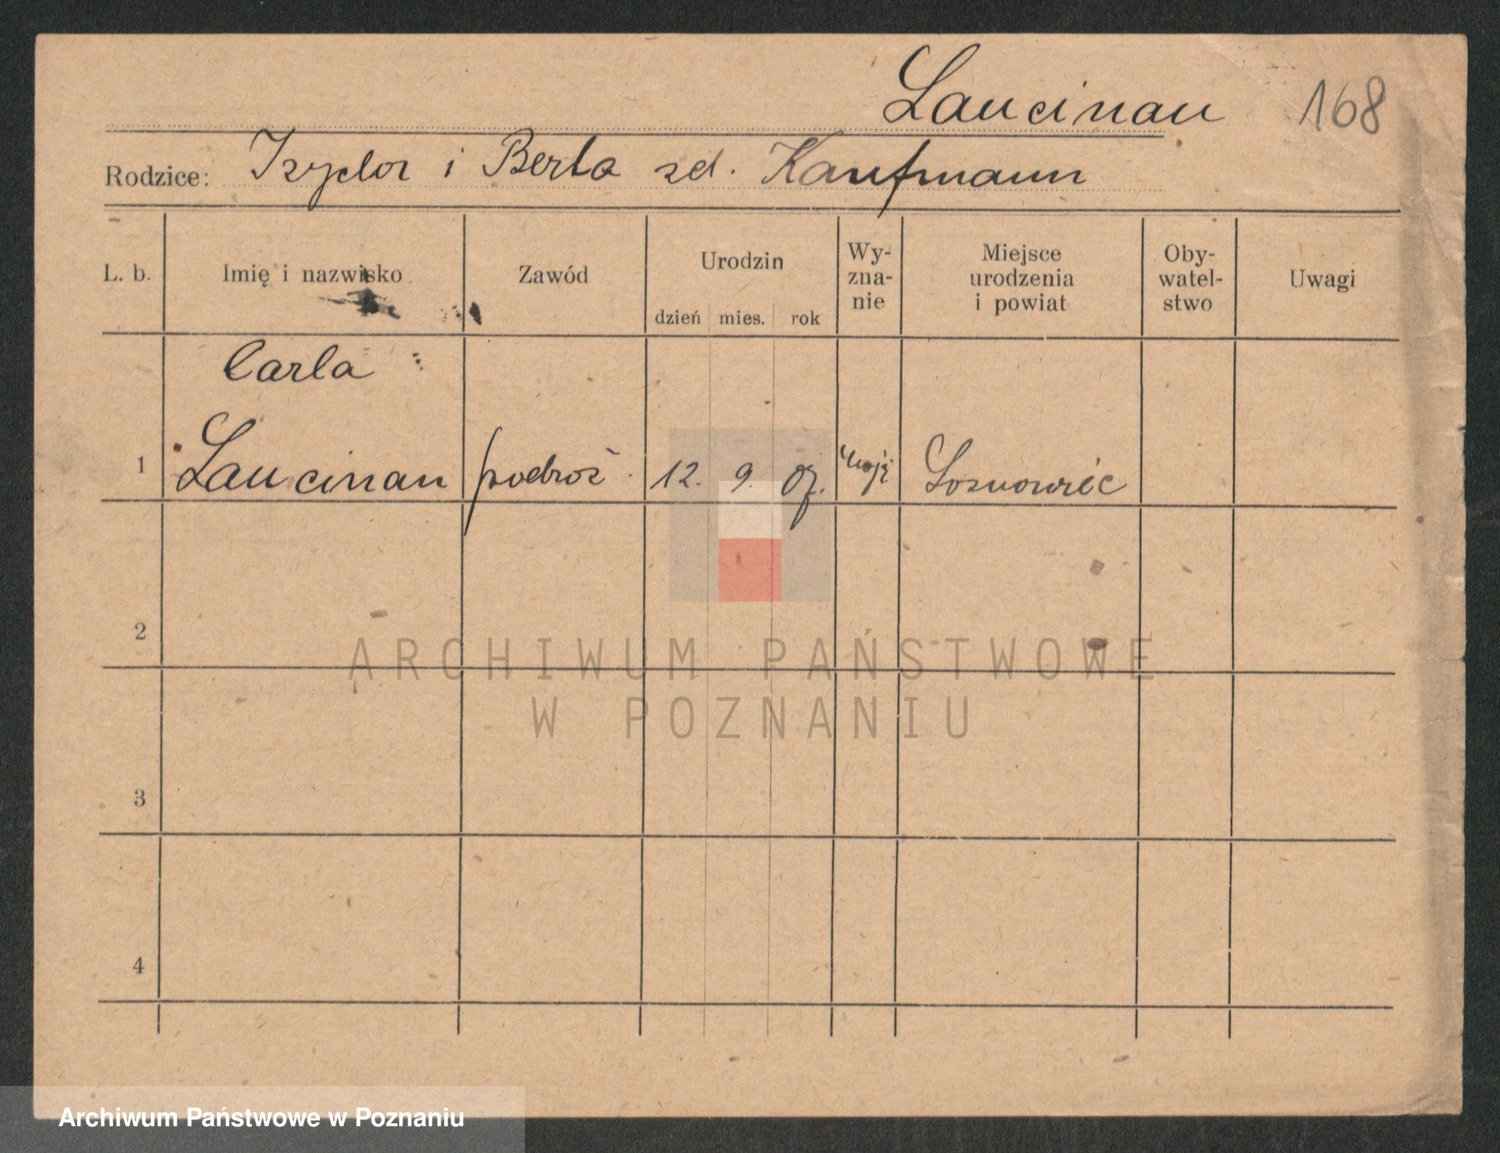 Laucinau 168
Rodzice: Izydor i Berta zd. Kaufmann
L. b. Imię i nazwisko Zawód Urodzin Wy-zna-nie Miejsce urodzenia i powiat Oby-watel-stwo Uwagi
dzień mies. rok
Carla
1 Laucinau podróż. 12. 9. 07. mojż Sosnowiec
2
ARCHIWUM PAŃSTWOWE
W POZNANIU
3
4
Archiwum Państwowe w Poznaniu